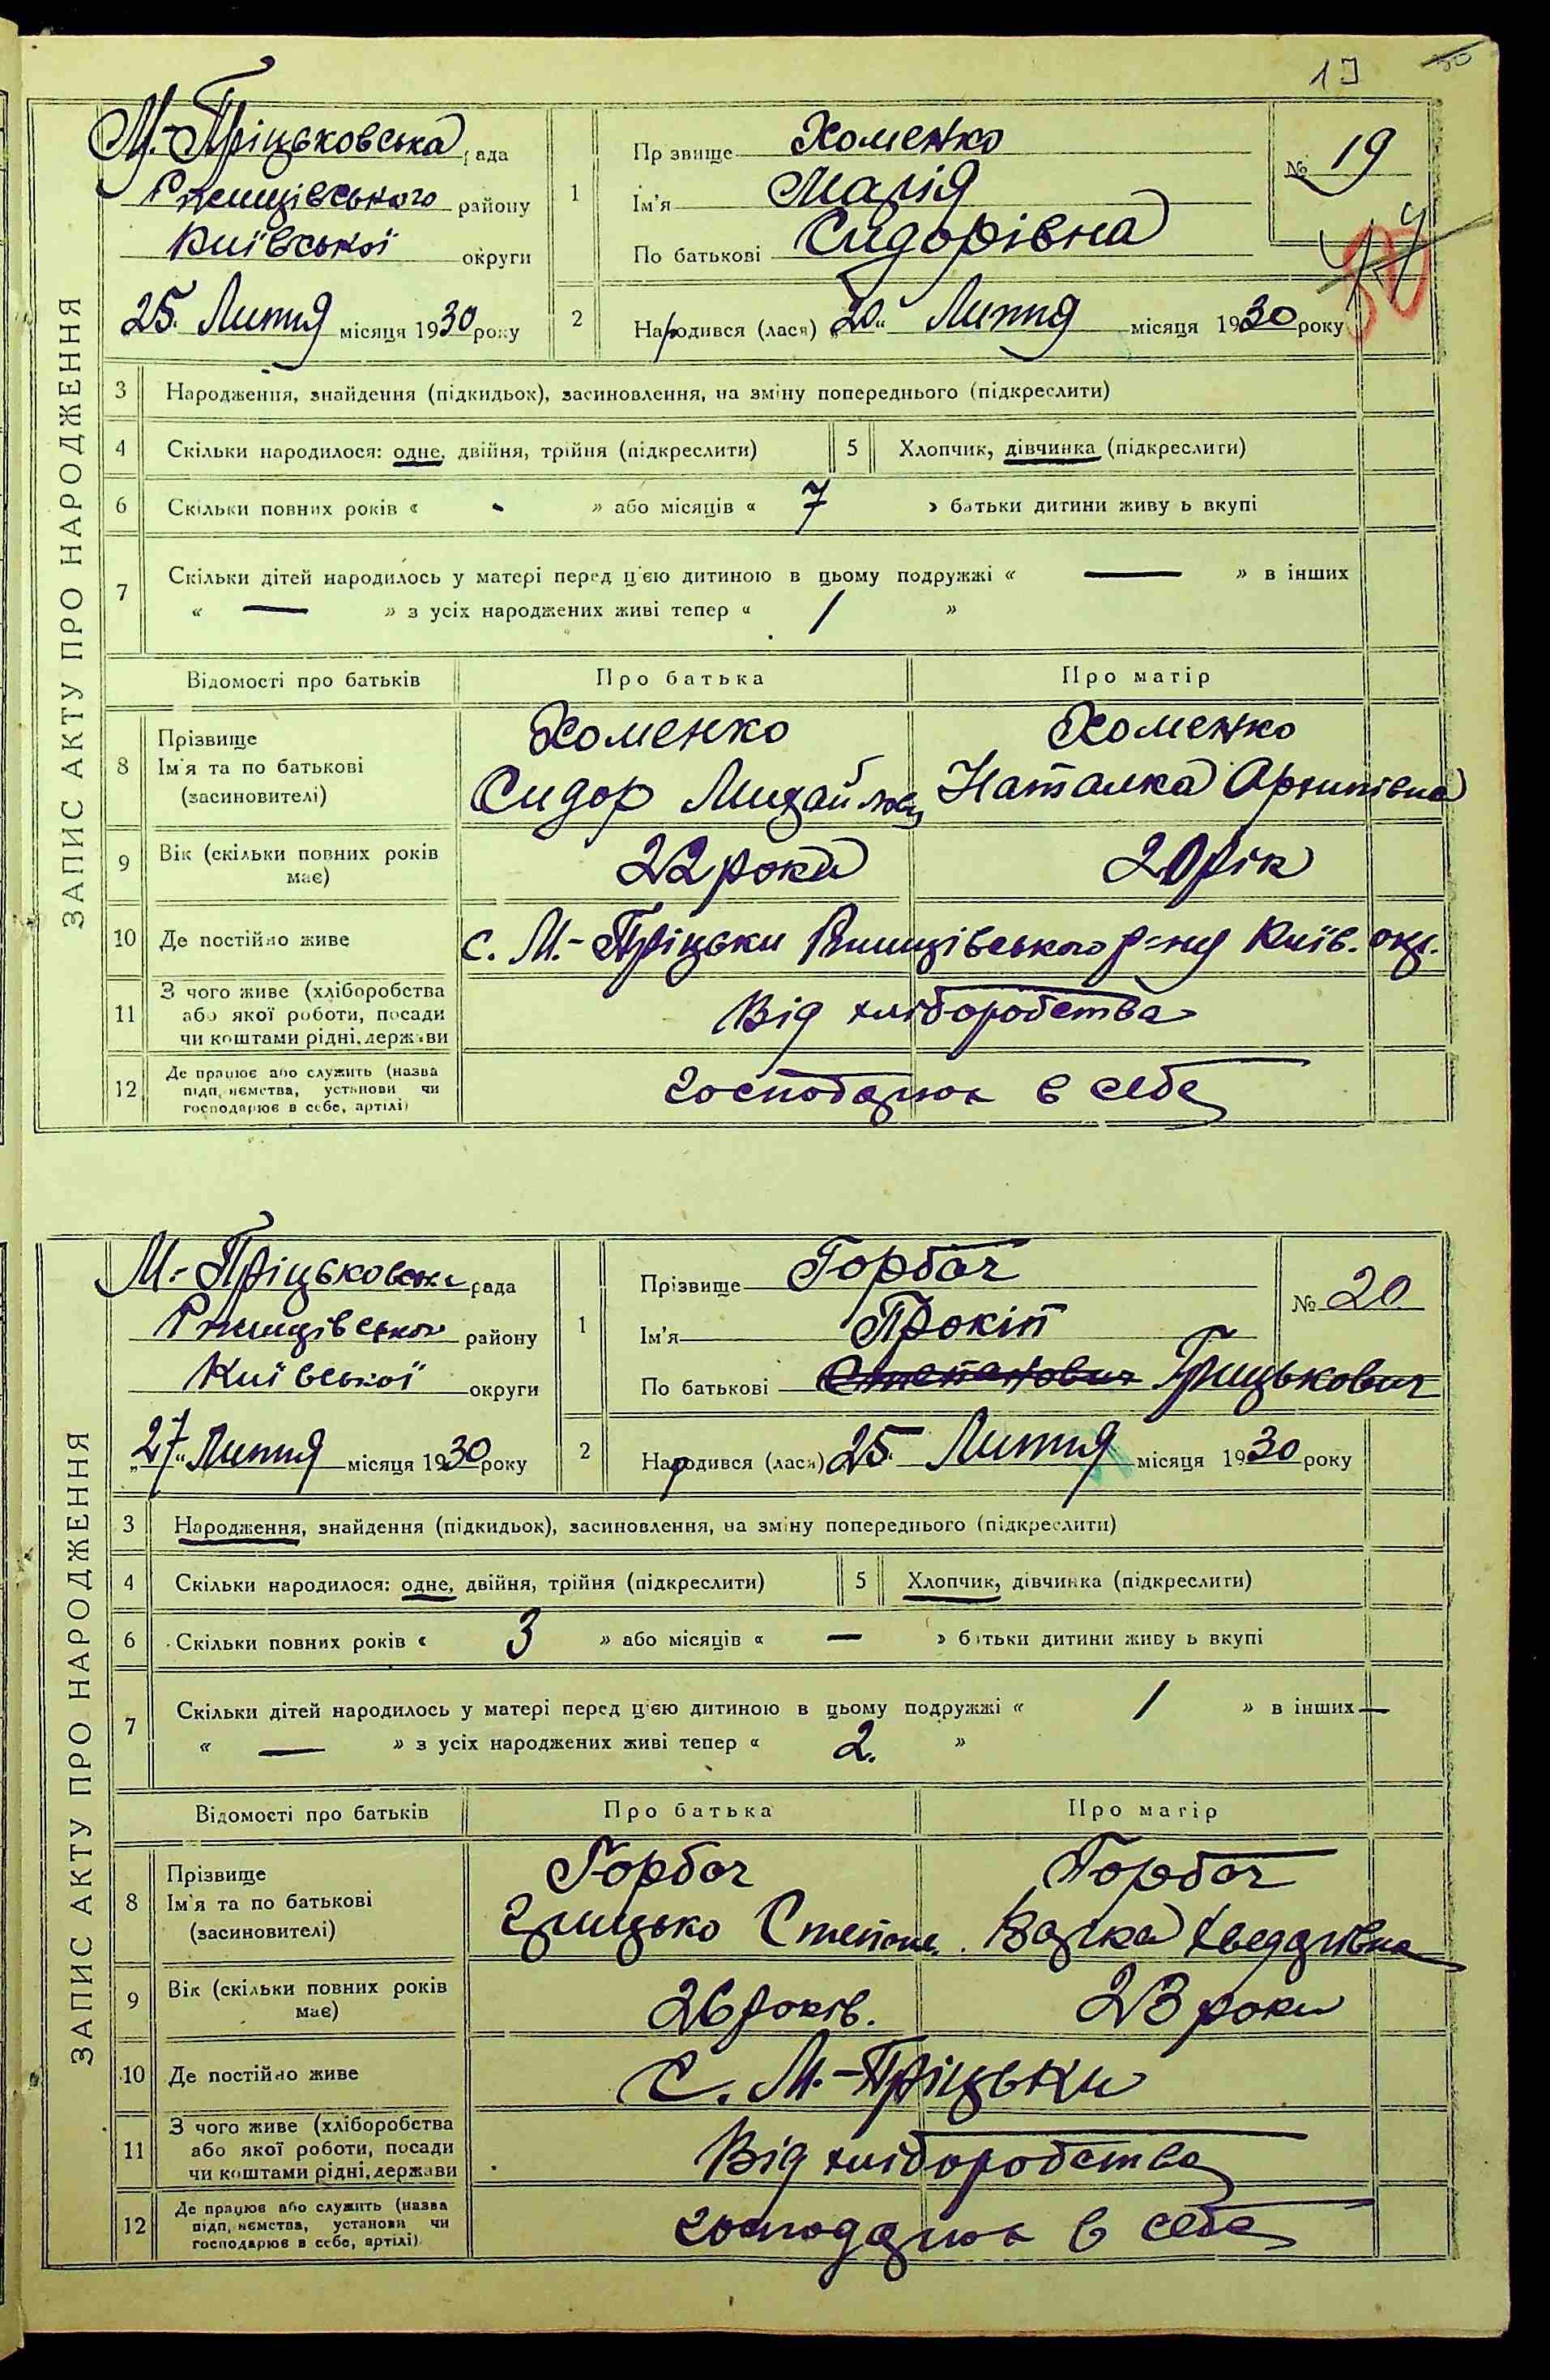 19
ЗАПИС АКТУ ПРО НАРОДЖЕННЯ
М.-Пріцьковська рада
Ржищівського району
Київської округи
25. Липня місяця 1930 року
1
Прізвище Хоменко
Ім'я Марія
По батькові Сидорівна
№ 19
2
Народився (лася) „20“ Липня місяця 1930 року
3 Народження, знайдення (підкидьок), засиновлення, на зміну попереднього (підкреслити)
4 Скільки народилося: одне, двійня, трійня (підкреслити) 5 Хлопчик, дівчинка (підкреслити)
6 Скільки повних років « - » або місяців « 7 » батьки дитини живуть вкупі
7 Скільки дітей народилось у матері перед цією дитиною в цьому подружжі « — » в інших
« — » з усіх народжених живі тепер « 1 »
Відомості про батьків Про батька Про матір
8 Прізвище Хоменко Хоменко
Ім'я та по батькові Сидор Михайлов. Наталка Архипівна
(засиновителі)
9 Вік (скільки повних років має) 22 роки 20 рік
10 Де постійно живе с. М.-Пріцьки Ржищівського р-ну Київ. окр.
11 З чого живе (хліборобства
або якої роботи, посади
чи коштами рідні, держави
Від хліборобства
12 Де працює або служить (назва
підприємства, установи чи
господарює в себе, артілі)
господарює в себе
ЗАПИС АКТУ ПРО НАРОДЖЕННЯ
М.-Пріцьковська рада
Ржищівського району
Київської округи
„27“ Липня місяця 1930 року
1
Прізвище Горбач
Ім'я Прокіп
По батькові Степанович Грицькович
№ 20
2
Народився (лася) 25. Липня місяця 1930 року
3 Народження, знайдення (підкидьок), засиновлення, на зміну попереднього (підкреслити)
4 Скільки народилося: одне, двійня, трійня (підкреслити) 5 Хлопчик, дівчинка (підкреслити)
6 Скільки повних років « 3 » або місяців « — » батьки дитини живуть вкупі
7 Скільки дітей народилось у матері перед цією дитиною в цьому подружжі « 1 » в інших —
« — » з усіх народжених живі тепер « 2. »
Відомості про батьків Про батька Про матір
8 Прізвище Горбач Горбач
Ім'я та по батькові Грицько Степан.
(засиновителі)
9 Вік (скільки повних років має) 26 років. 23 роки
10 Де постійно живе С. М.-Пріцьки
11 З чого живе (хліборобства
або якої роботи, посади
чи коштами рідні, держави
Від хліборобства
12 Де працює або служить (назва
підприємства, установи чи
господарює в себе, артілі)
господарює в себе